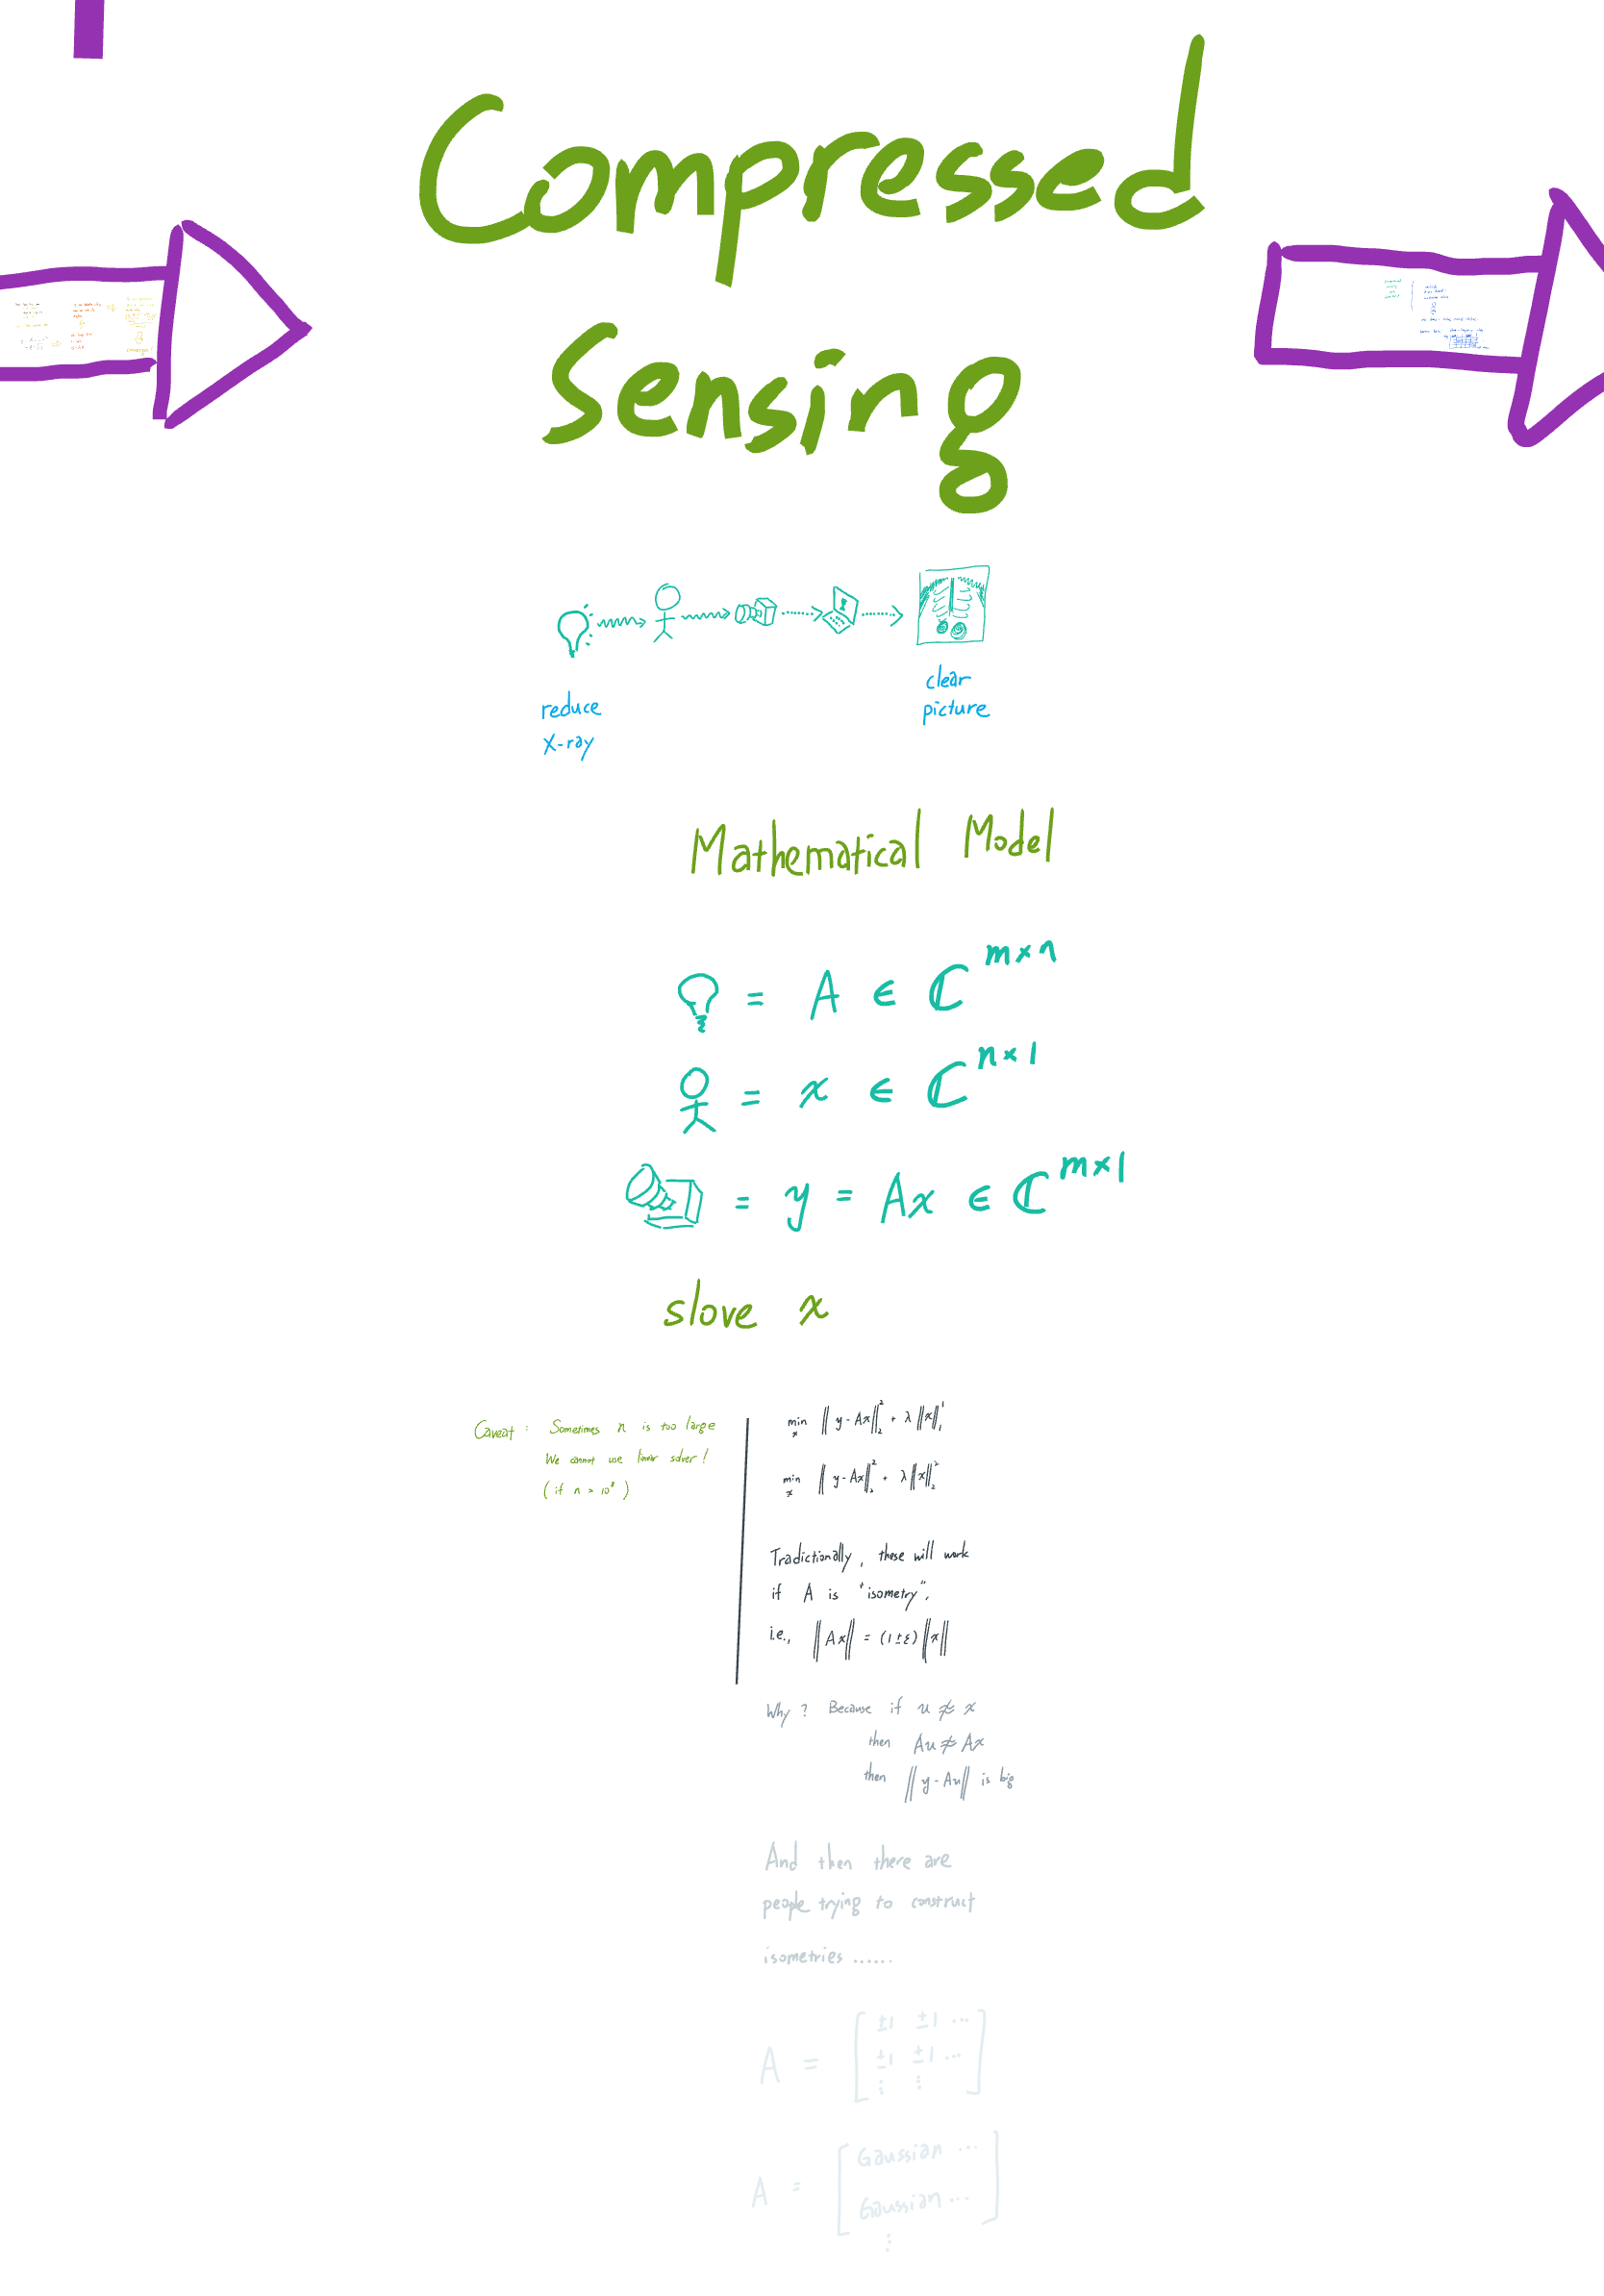 Compressed
Sensing
reduce
X-ray
clear
picture
Mathematical Model
= A ∈ ℂ^{m×n}
= x ∈ ℂ^{n×1}
= y = Ax ∈ ℂ^{m×1}
slove x
Caveat : Sometimes n is too large
We cannot use linear solver!
(if n > 10⁸)
min_x ‖y-Ax‖₂² + λ‖x‖₁¹
min_x ‖y-Ax‖₂² + λ‖x‖₂²
Tradictionally, these will work
if A is "isometry",
i.e., ‖Ax‖ = (1±ε)‖x‖
Why? Because if u ≉ x
then Au ≉ Ax
then ‖y-Au‖ is big
And then there are
people trying to construct
isometries ......
A = [ ±1 ±1 ...
±1 ±1 ...
⋮ ⋮ ]
A = [ Gaussian ...
Gaussian ...
⋮ ]